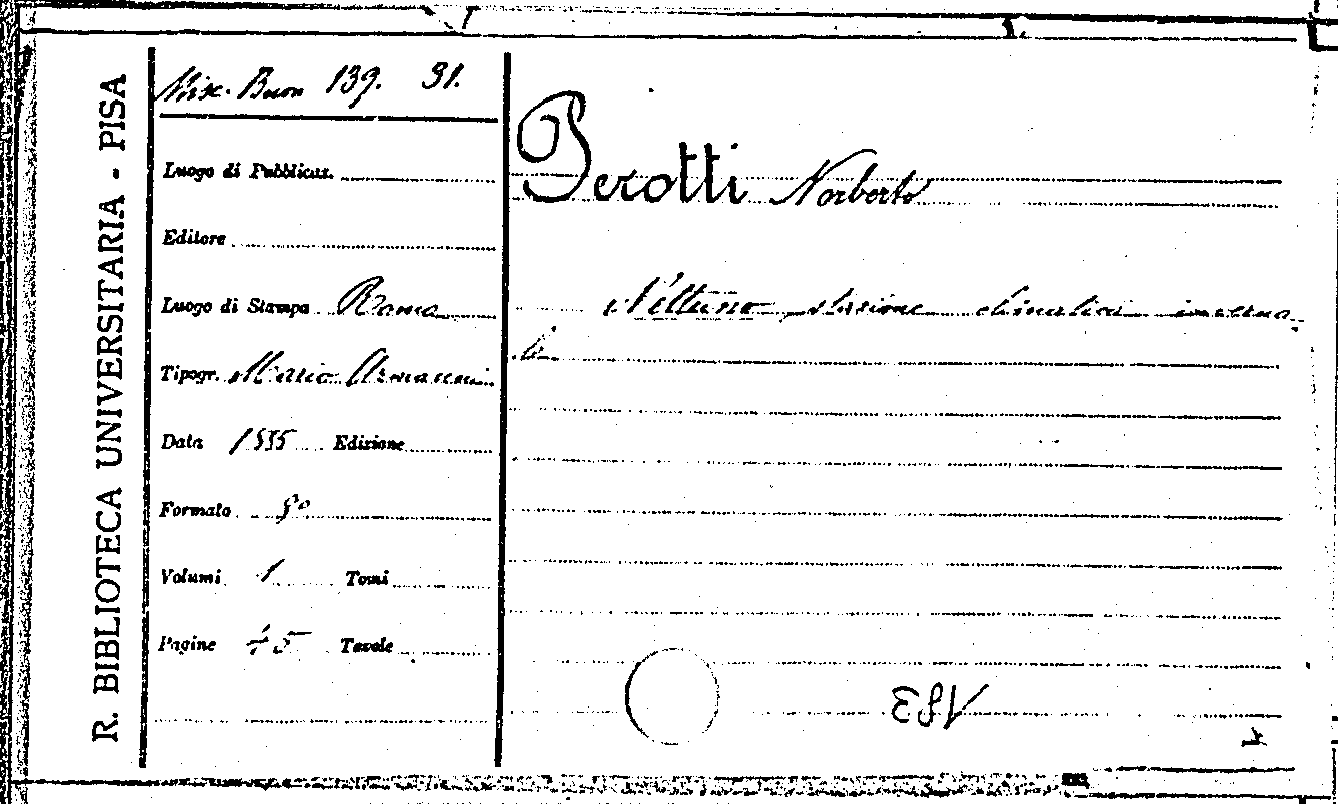 R. BIBLIOTECA UNIVERSITARIA - PISA
Misc. Buon 139. 31.
Luogo di Pubblicaz.
Editore
Luogo di Stampa Roma
Tipogr. Mario Armanni
Data 1885 Edizione
Formato 8º
Volumi 1 Tomi
Pagine 45 Tavole
Perotti Norberto
Nettuno stazione climatica inverna-
le